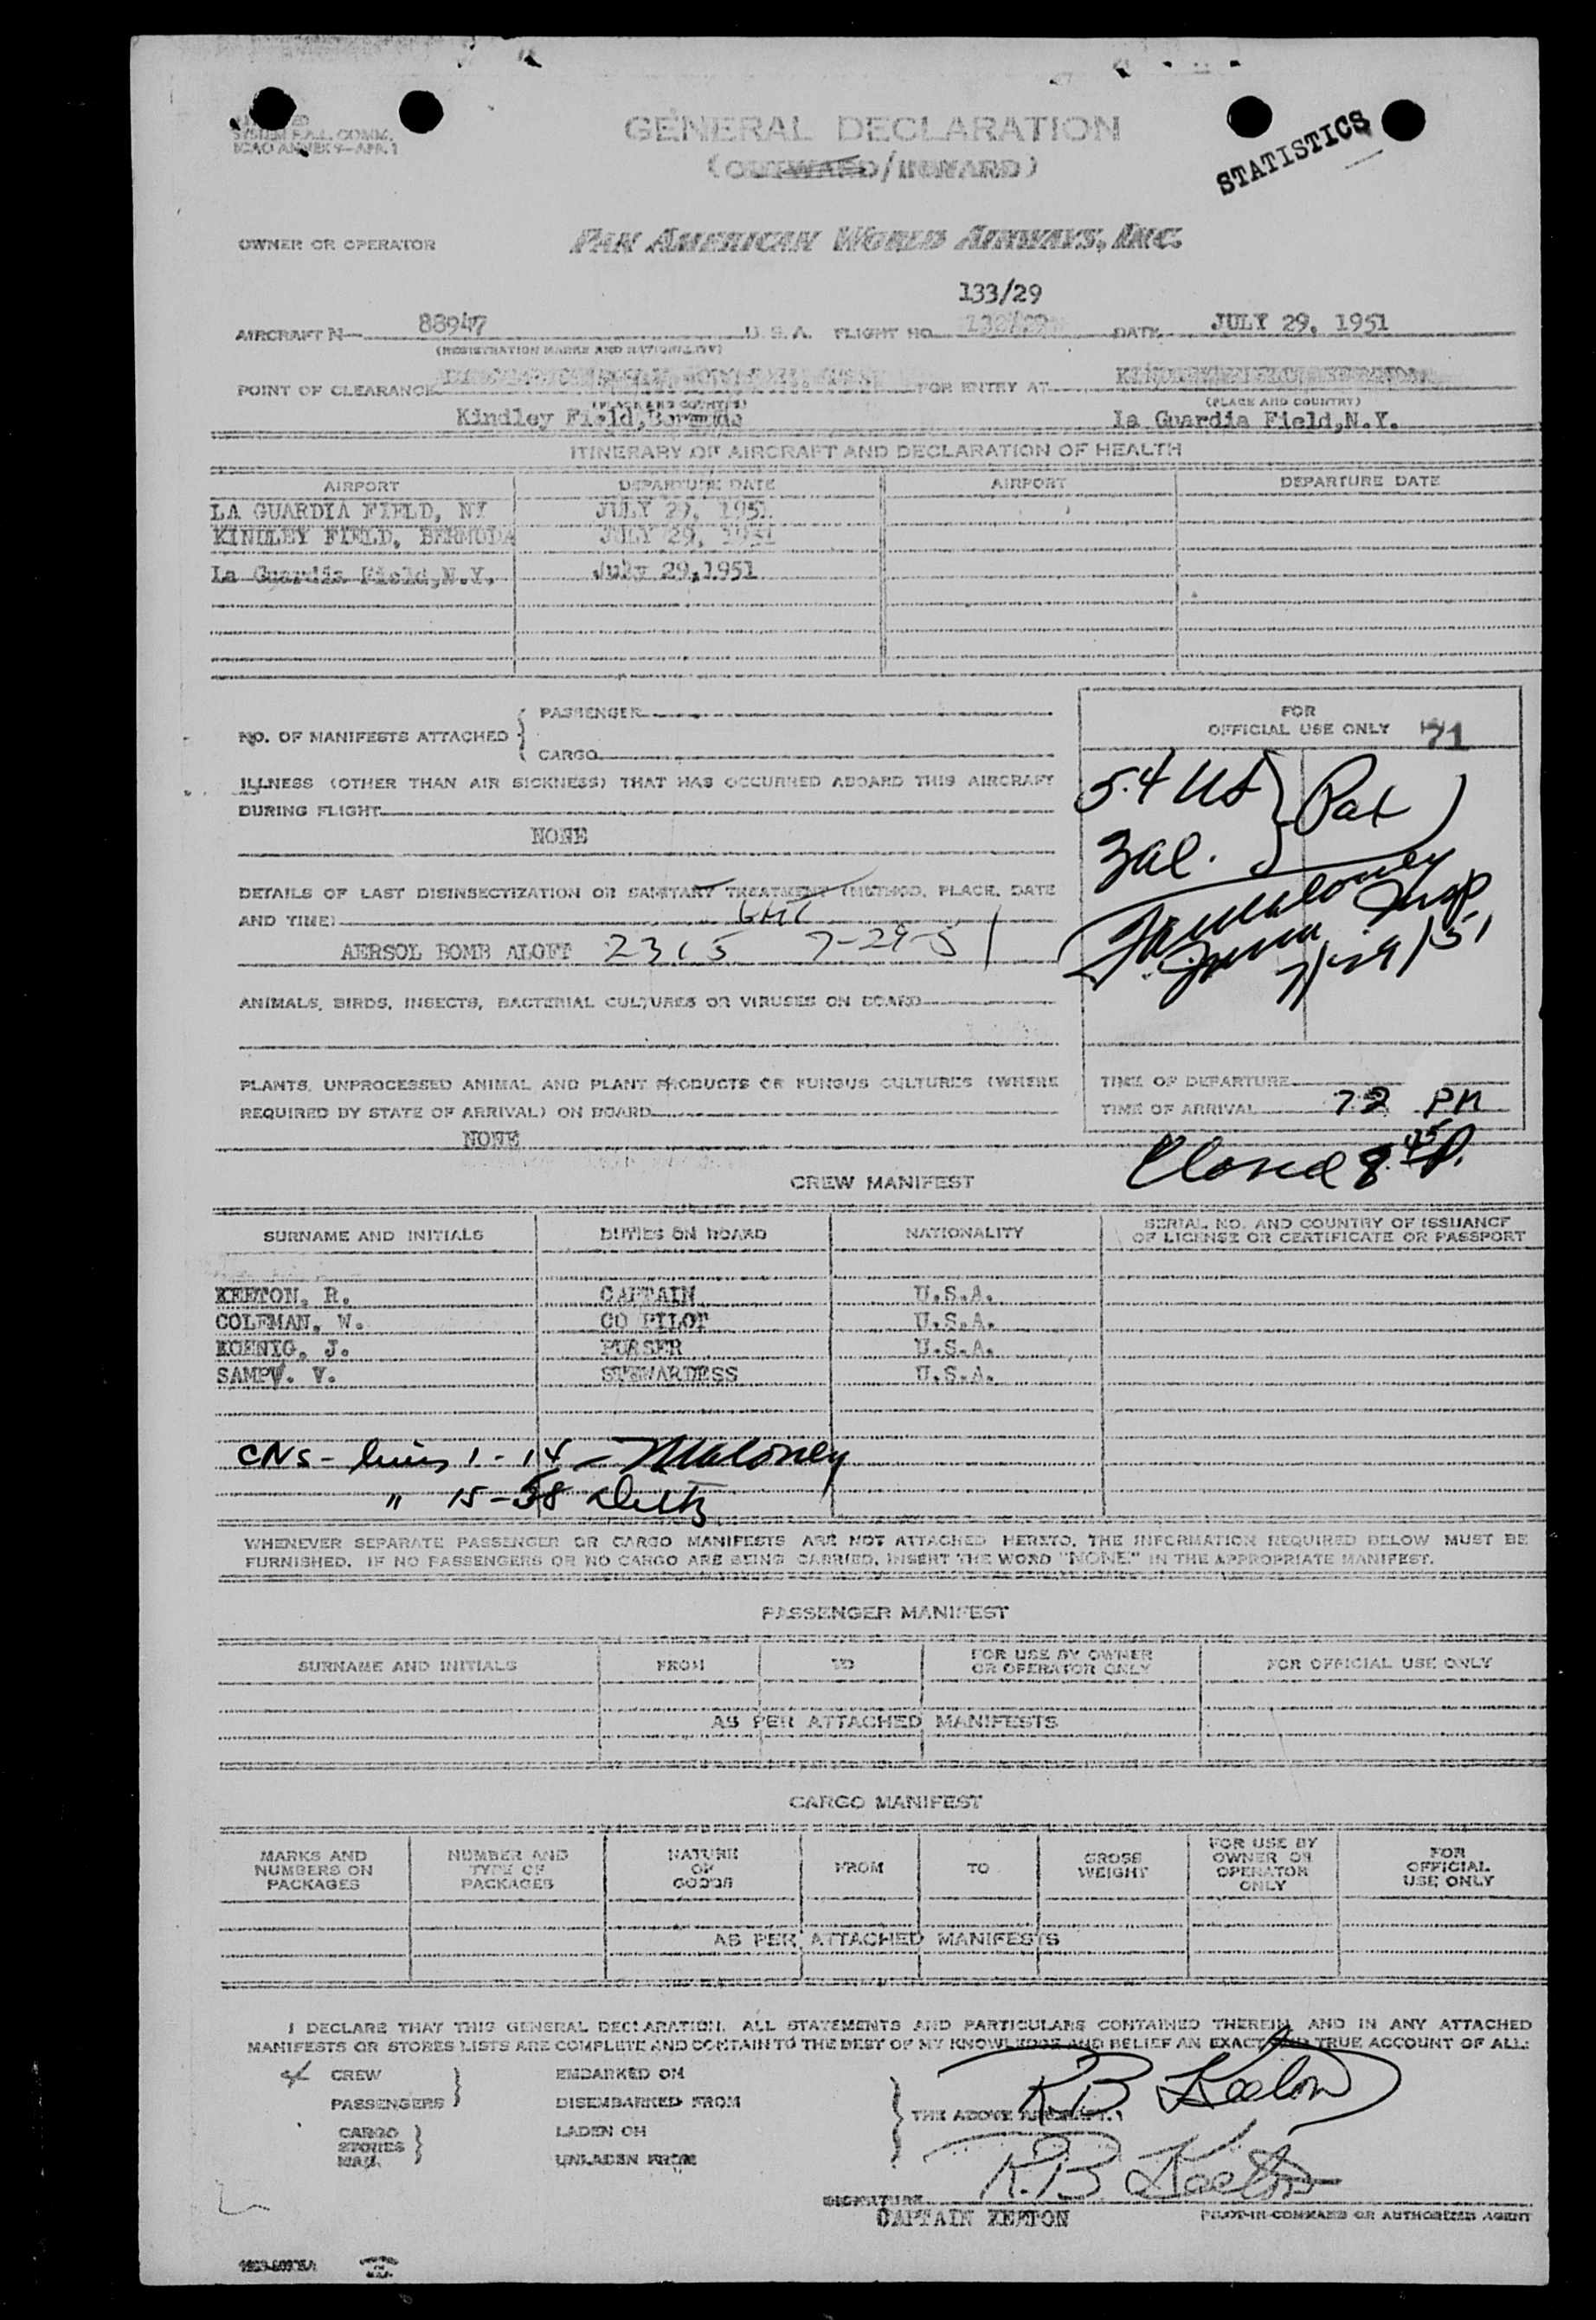 GENERAL DECLARATION
(OUTWARD/INWARD)
STATISTICS
OWNER OR OPERATOR PAN AMERICAN WORLD AIRWAYS, INC.
133/29
AIRCRAFT N- 88947 U.S.A. FLIGHT NO. DATE JULY 29, 1951
(REGISTRATION MARKS AND NATIONALITY)
POINT OF CLEARANCE FOR ENTRY AT KINDLEY FIELD BERMUDA
(PLACE AND COUNTRY) (PLACE AND COUNTRY)
Kindley Field,Bermuda La Guardia Field,N.Y.
ITINERARY OF AIRCRAFT AND DECLARATION OF HEALTH
AIRPORT DEPARTURE DATE AIRPORT DEPARTURE DATE
LA GUARDIA FIELD, NY JULY 29, 1951
KINDLEY FIELD, BERMUDA JULY 29, 1951
La Guardia Field,N.Y. July 29,1951
NO. OF MANIFESTS ATTACHED { PASSENGER
CARGO
ILLNESS (OTHER THAN AIR SICKNESS) THAT HAS OCCURRED ABOARD THIS AIRCRAFT
DURING FLIGHT
NONE
DETAILS OF LAST DISINSECTIZATION OR SANITARY TREATMENT (METHOD, PLACE, DATE
AND TIME) GMT
AERSOL BOMB ALOFT 2315 7-29-51
ANIMALS, BIRDS, INSECTS, BACTERIAL CULTURES OR VIRUSES ON BOARD
PLANTS, UNPROCESSED ANIMAL AND PLANT PRODUCTS OR FUNGUS CULTURES (WHERE
REQUIRED BY STATE OF ARRIVAL) ON BOARD
NONE
FOR
OFFICIAL USE ONLY 71
54 US } Pax
3 al.
Maloney
Insp
7/29/51
TIME OF DEPARTURE
TIME OF ARRIVAL 7 2 PM
Closed 8 45 P.
CREW MANIFEST
SURNAME AND INITIALS DUTIES ON BOARD NATIONALITY SERIAL NO. AND COUNTRY OF ISSUANCE
OF LICENSE OR CERTIFICATE OR PASSPORT
KEETON, R. CAPTAIN U.S.A.
COLEMAN, W. CO PILOT U.S.A.
KOENIG, J. PURSER U.S.A.
SAMPW. V. STEWARDESS U.S.A.
CNS - lines 1 - 14 - Maloney
" 15-58
WHENEVER SEPARATE PASSENGER OR CARGO MANIFESTS ARE NOT ATTACHED HERETO, THE INFORMATION REQUIRED BELOW MUST BE
FURNISHED. IF NO PASSENGERS OR NO CARGO ARE BEING CARRIED, INSERT THE WORD "NONE" IN THE APPROPRIATE MANIFEST.
PASSENGER MANIFEST
SURNAME AND INITIALS FROM TO FOR USE BY OWNER
OR OPERATOR ONLY FOR OFFICIAL USE ONLY
AS PER ATTACHED MANIFESTS
CARGO MANIFEST
MARKS AND
NUMBERS ON
PACKAGES
NUMBER AND
TYPE OF
PACKAGES
NATURE
OF
GOODS
FROM
TO
GROSS
WEIGHT
FOR USE BY
OWNER OR
OPERATOR
ONLY
FOR
OFFICIAL
USE ONLY
AS PER ATTACHED MANIFESTS
I DECLARE THAT THIS GENERAL DECLARATION, ALL STATEMENTS AND PARTICULARS CONTAINED THEREIN, AND IN ANY ATTACHED
MANIFESTS OR STORES LISTS ARE COMPLETE AND CONTAIN TO THE BEST OF MY KNOWLEDGE AND BELIEF AN EXACT AND TRUE ACCOUNT OF ALL:
4 CREW EMBARKED ON
PASSENGERS } DISEMBARKED FROM
CARGO LADEN ON
STORES }
MAIL UNLADEN FROM
} THE ABOVE AIRCRAFT.
RB Keeton
R.B Keeton
SIGNATURE
CAPTAIN KEETON PILOT-IN-COMMAND OR AUTHORIZED AGENT